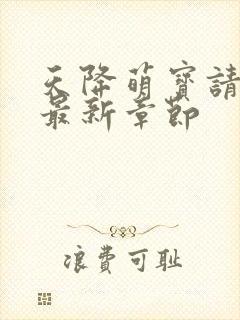 天降萌寶請
最新章節
浪費可耻